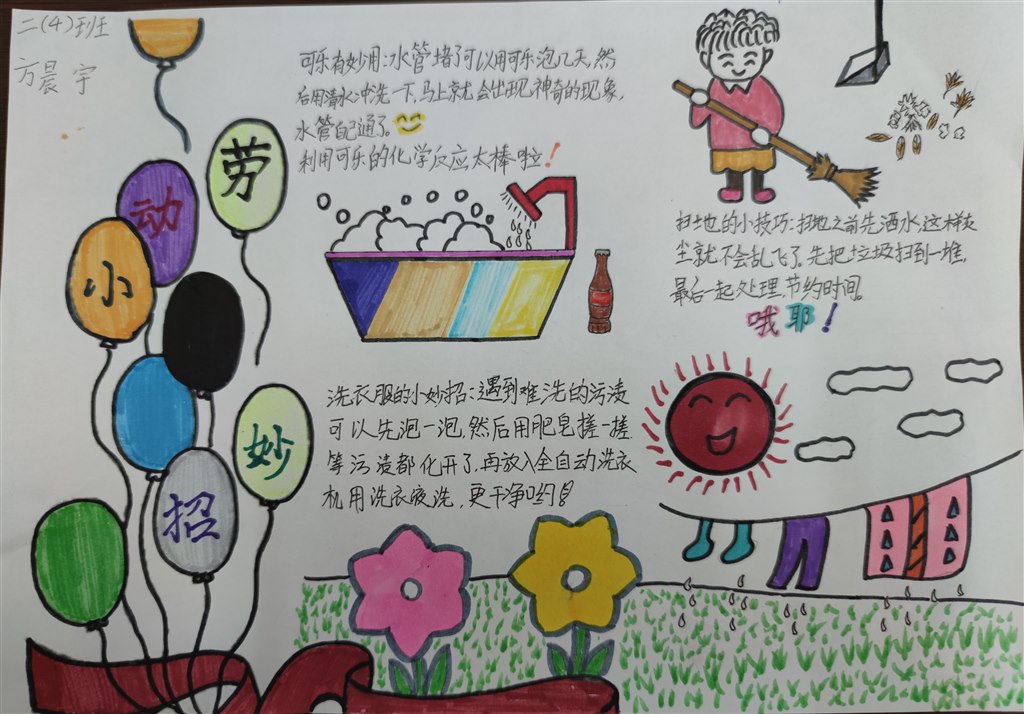 二(4)班
方晨宇
劳
动
小
妙
招
可乐有妙用:水管堵了可以用可乐泡几天,然
后用清水冲洗一下,马上就会出现神奇的现象,
水管自己通了。
利用可乐的化学反应太棒啦!
扫地的小技巧:扫地之前先洒水,这样灰
尘就不会乱飞了。先把垃圾扫到一堆,
最后一起处理,节约时间。
哦耶!
洗衣服的小妙招:遇到难洗的污渍
可以先泡一泡,然后用肥皂搓一搓
等污渍都化开了,再放入全自动洗衣
机用洗衣液洗,更干净哟!